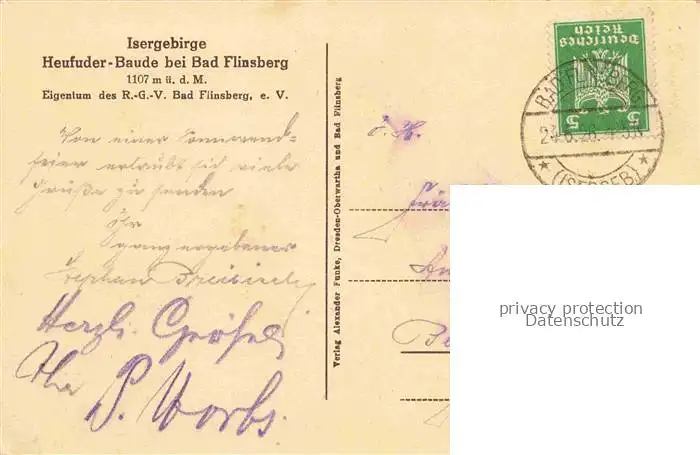 Isergebirge
Heufuder-Baude bei Bad Flinsberg
1107 m ü. d. M.
Eigentum des R.-G.-V. Bad Flinsberg, e. V.
Von einer Sonnwend-
feier erlaubt sich viele
Grüße zu senden
Ihr
ganz ergebener
Stephan
Herzl. Grüße
Ihr
P. Worbs
Verlag Alexander Funke, Dresden-Oberwartha und Bad Flinsberg
Deutsches
Reich
5 5
BAD FLINSBERG
(ISERGEB)
privacy protection
Datenschutz